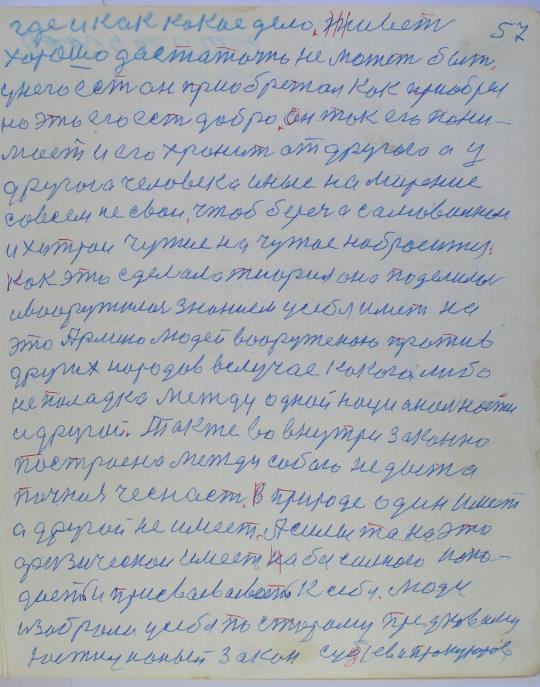 где и как какое дело. Живет 57
хорошо достаточн не может быт.
у него ест он приобретал как приобрел
но это его ест добро. Он так его пони-
мает и его хранит от другого а у
другого человека иные на мерение
совсем не свои, чтоб береч а самовольнои
и хитрои чужие на чужое набросится.
Как это сделала теория она поделилас
вооружилас знанием у себя имет на
это Армию людей вооруженою против
других народов вслучае какога либо
не поладка между одной националности
и другой. Также во внутри законно
построено между собою не доста
точная чеснаст. В природе один имеет
а другой не имеет. А силы та на это
физической имеет На бесилного напо-
дает и присваевает к себя. Люди
избрали у себя по старому предковому
закон судев прокуроров